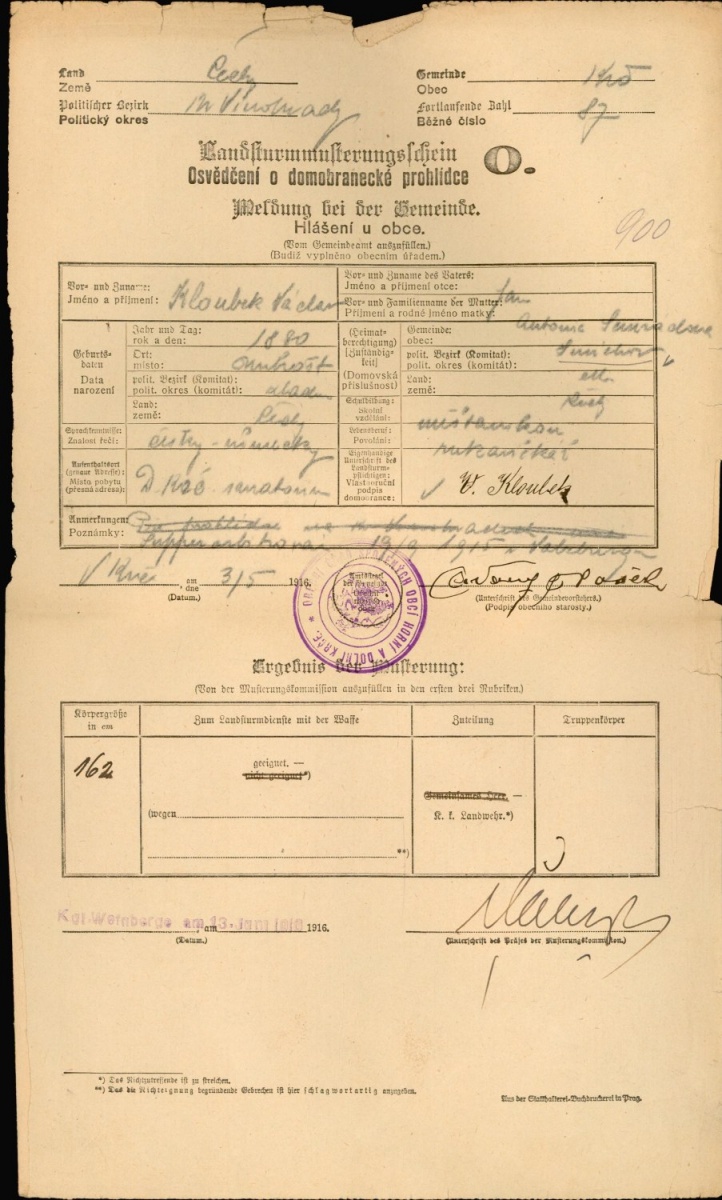 Land Země Čechy
Gemeinde Obec Krč
Politischer Bezirk Politický okres Kr. Vinohrady
Fortlaufende Zahl Běžné číslo 87
Landsturmmusterungsschein O.
Osvědčení o domobranecké prohlídce
Meldung bei der Gemeinde.
Hlášení u obce.
900
(Vom Gemeindeamt auszufüllen.)
(Budiž vyplněno obecním úřadem.)
Vor- und Zuname:
Jméno a příjmení: Kloubek Václav
Vor- und Zuname des Vaters:
Jméno a příjmení otce: Jan
Vor- und Familienname der Mutter:
Příjmení a rodné jméno matky: Antonie
Geburtsdaten
Data narození
Jahr und Tag:
rok a den: 1880
Ort:
místo:
polit. Bezirk (Komitat):
polit. okres (komitát):
Land:
země: Čechy
(Heimatberechtigung)
[Zuständigkeit]
(Domovská příslušnost)
Gemeinde:
obec: Smíchov
polit. Bezirk (Komitat):
polit. okres (komitát): "
Land:
země: Čechy
Sprachkenntnisse:
Znalost řečí: česky-německy
Schulbildung:
Školní vzdělání: měšťanskou
Lebensberuf:
Povolání: rukavičkář
Aufenthaltsort
(genaue Adresse):
Místo pobytu
(přesná adresa): D. Krč. sanatorium
Eigenhändige
Unterschrift des
Landsturmpflichtigen:
Vlastnoruční
podpis
domobrance: V. Kloubek
Anmerkungen:
Poznámky: 19/9 1915 v Salzburgu
V Krči, am dne 3/5 1916.
(Datum.)
(Unterschrift des Gemeindevorstehers.)
(Podpis obecního starosty.)
OBCÍ HORNÍ A DOLNÍ KRČE.
Ergebnis der Musterung:
(Von der Musterungskommission auszufüllen in den ersten drei Rubriken.)
Körpergröße in cm
Zum Landsturmdienste mit der Waffe
Zuteilung
Truppenkörper
162
geeignet. —
nicht geeignet*)
(wegen
**)
Gemeinsames Heer. —
K. k. Landwehr.*)
Kgl. Weinberge am 13. 1916, am 1916.
(Datum.)
(Unterschrift des Präses der Musterungskommission.)
*) Das Nichtzutreffende ist zu streichen.
**) Das die Nichteignung begründende Gebrechen ist hier schlagwortartig anzugeben.
Aus der Statthalterei-Buchdruckerei in Prag.